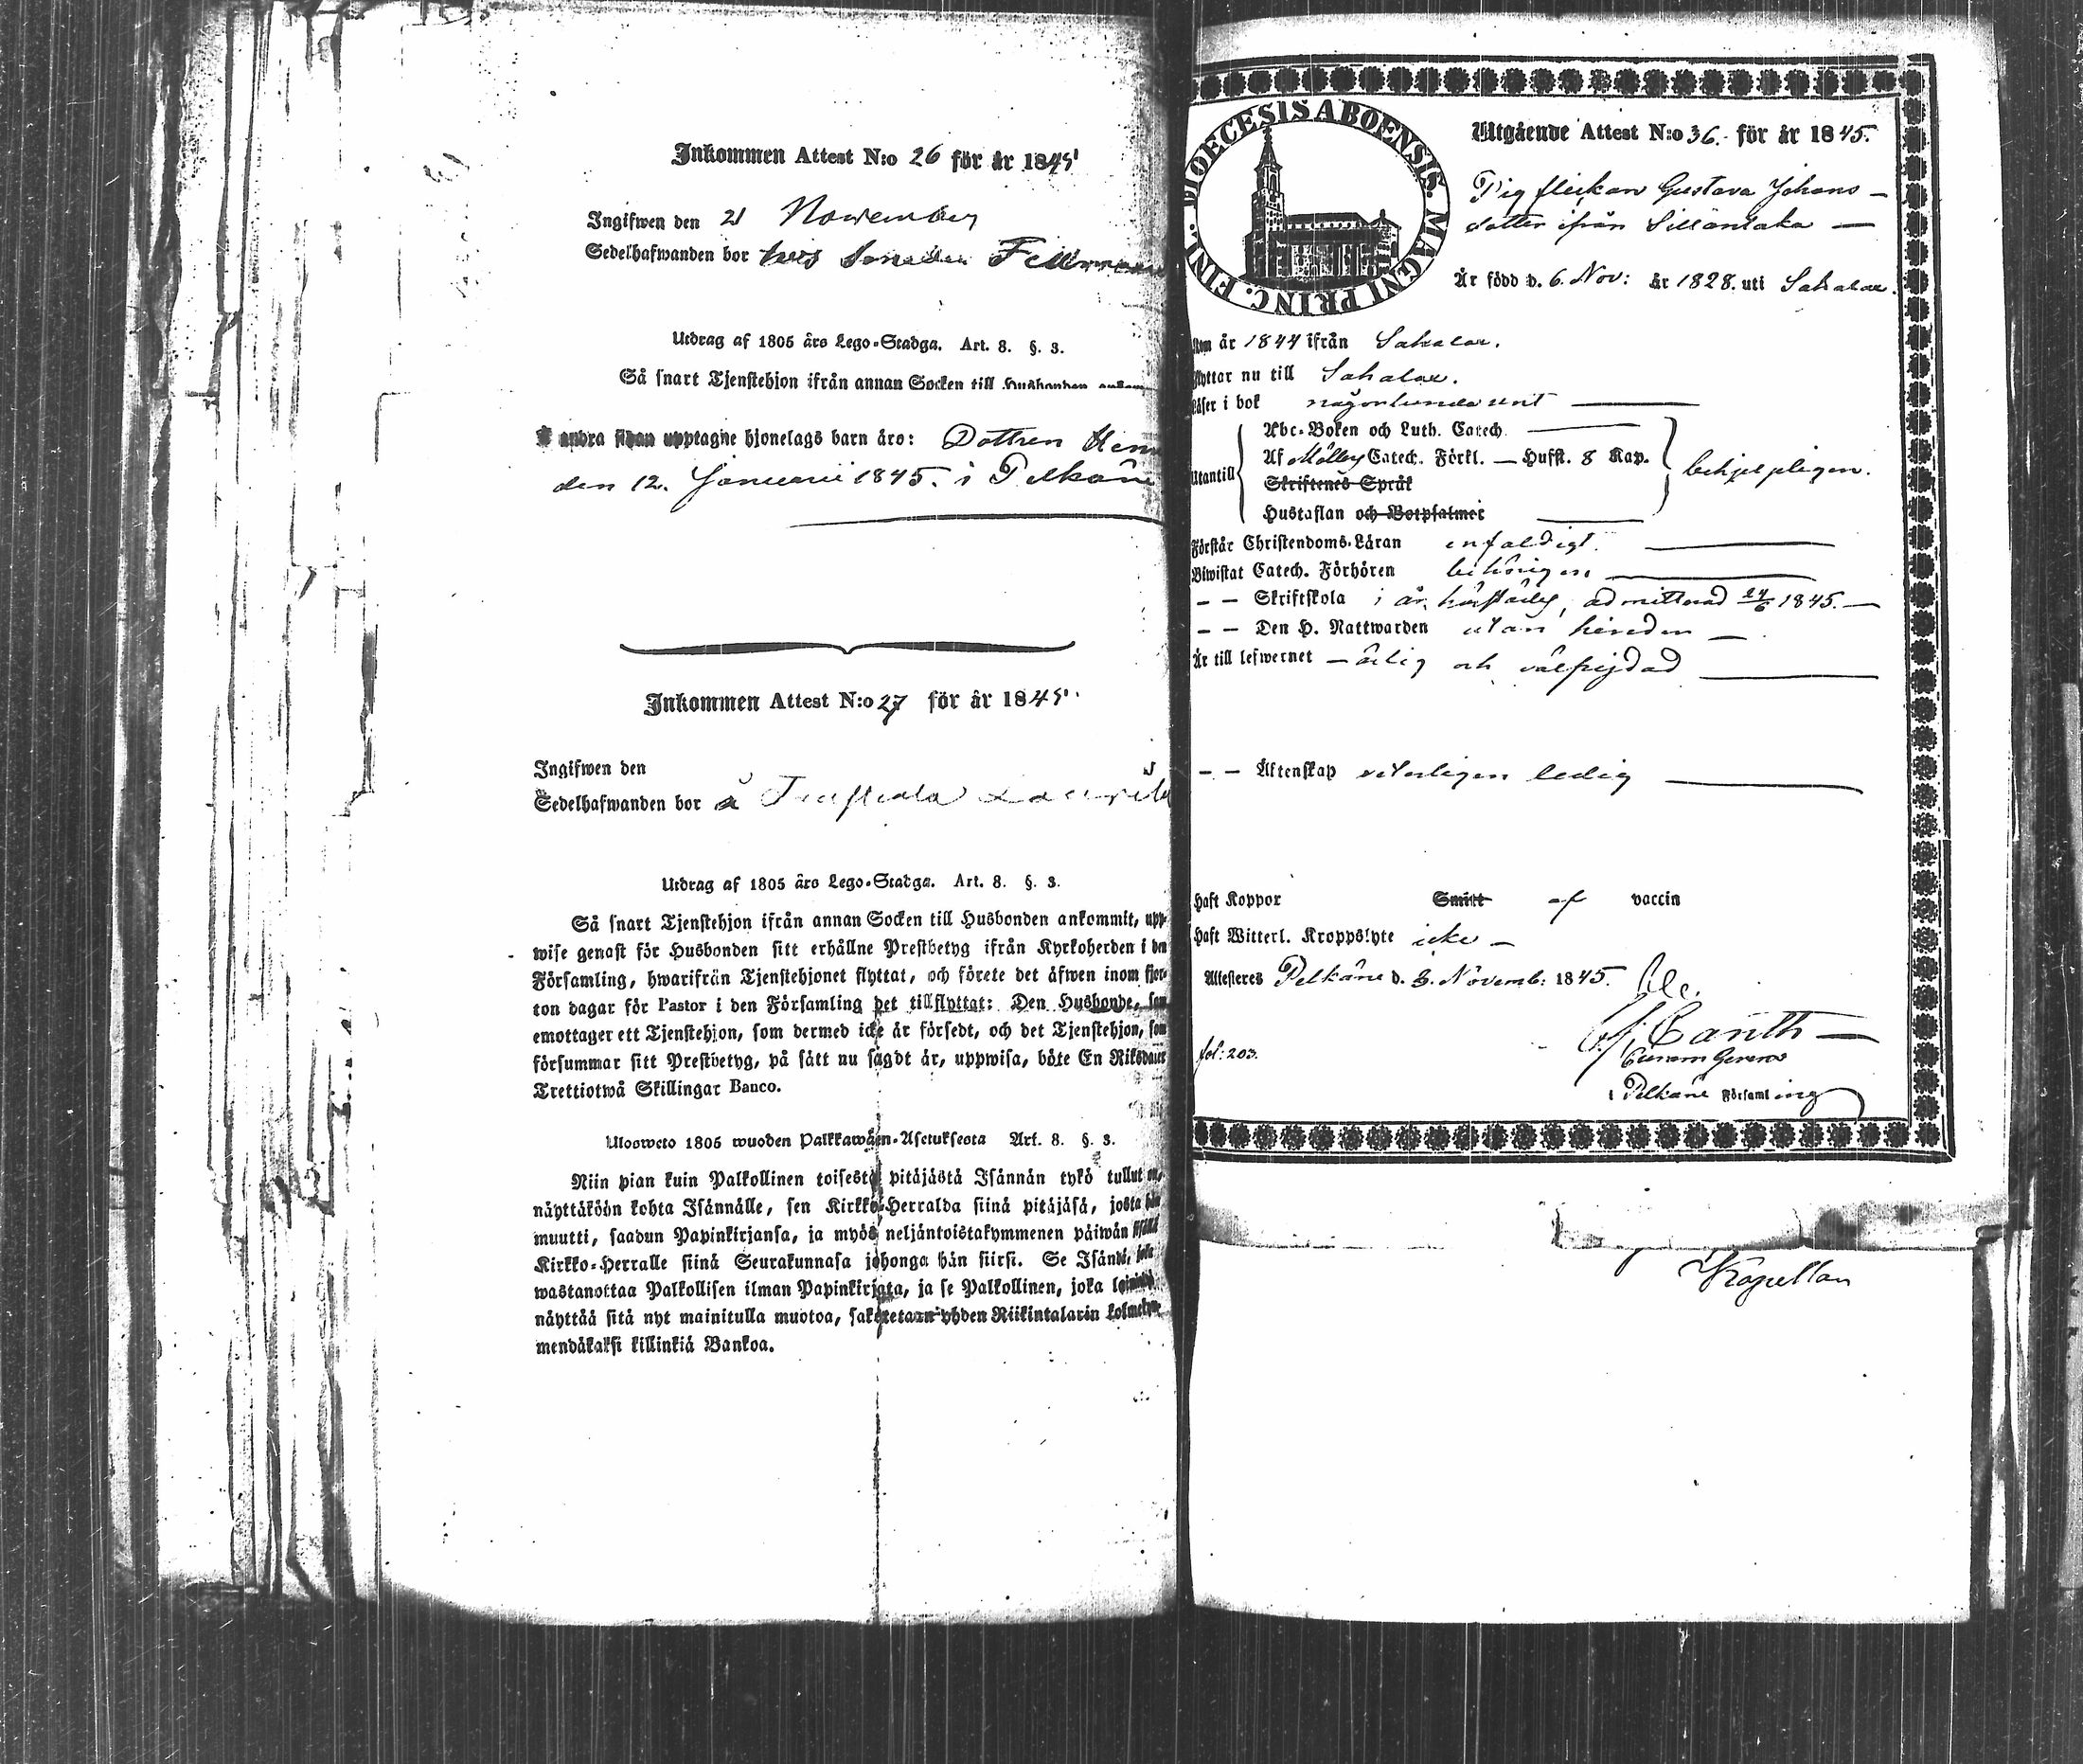 Inkommen Attest N:o 26 för år 1845
Ingifwen den 21 November
Sedelhafwanden bor hos
Utdrag af 1805 års Lego-Stadga. Art. 8. §. 3.
Så snart Tjenstehjon ifrån annan Socken till Husbonden
andra upptagne hjonelags barn äro: Dottren
den 12. Januarii 1845. i Pelkäne
Inkommen Attest N:o 27 för år 1845
Ingifwen den
Sedelhafwanden bor å
Utdrag af 1805 års Lego-Stadga. Art. 8. §. 3.
Så snart Tjenstehjon ifrån annan Socken till Husbonden ankommit, upp-
wise genast för Husbonden sitt erhållne Prestbetyg ifrån Kyrkoherden i den
Församling, hwarifrån Tjenstehjonet flyttat, och förete det äfwen inom fjor-
ton dagar för Pastor i den Församling det tillflyttat: Den Husbonde, som
emottager ett Tjenstehjon, som dermed icke är försedt, och det Tjenstehjon, som
försummar sitt Prestbetyg, på sätt nu sagdt är, uppwisa, böte En Riksdaler
Trettiotwå Skillingar Banco.
Ulosweto 1805 wuoden Palkkawäen-Asetuksesta Art. 8. §. 3.
Niin pian kuin Palkollinen toisesta pitäjästä Isännän tykö tullut on,
näyttäköön kohta Isännälle, sen Kirkko-Herralda siinä pitäjäsä, josta hän
muutti, saadun Papinkirjansa, ja myös neljäntoistakymmenen päiwän sisällä
Kirkko-Herralle siinä Seurakunnasa johonga hän siirsi. Se Isändä, joka
wastanottaa Palkollisen ilman Papinkirjata, ja se Palkollinen, joka laiminlyö
näyttää sitä nyt mainitulla muotoa, saketetaan yhden Riikintalarin kolmekym-
mendäkaksi killinkiä Bankoa.
DIOECESIS ABOENSIS. MAGNI PRINC. FINL.
Utgående Attest N:o 36. för år 1845.
Pigflickan Gustava Johans-
dotter ifrån
Är född d. 6. Nov: år 1828. uti Sahalax.
Kom år 1844 ifrån Sahalax.
Flyttar nu till Sahalax.
Läser i bok någorlunda rent
Abc-Boken och Luth. Catech.
Utantill Af Möllers Catech. Förkl. — Husst. 8 Kap. behjelpligen.
Skriftenes Språk
Hustaflan och Botpsalmer
Förstår Christendoms-Läran enfaldigt.
Biwistat Catech. Förhören behörigen
— — Skriftskola i år, admitterad 24/6 1845.
— — Den H. Nattwarden utan
Är till lefwernet — ärlig och välfrejdad
— — Äktenskap veterligen ledig
Haft Koppor Smitt af vaccin
Haft Witterl. Kroppslyte icke
Attesteres Pelkäne d. 3. Novemb: 1845.
Canth
fol: 203.
i Pelkäne Församling
Kapellan